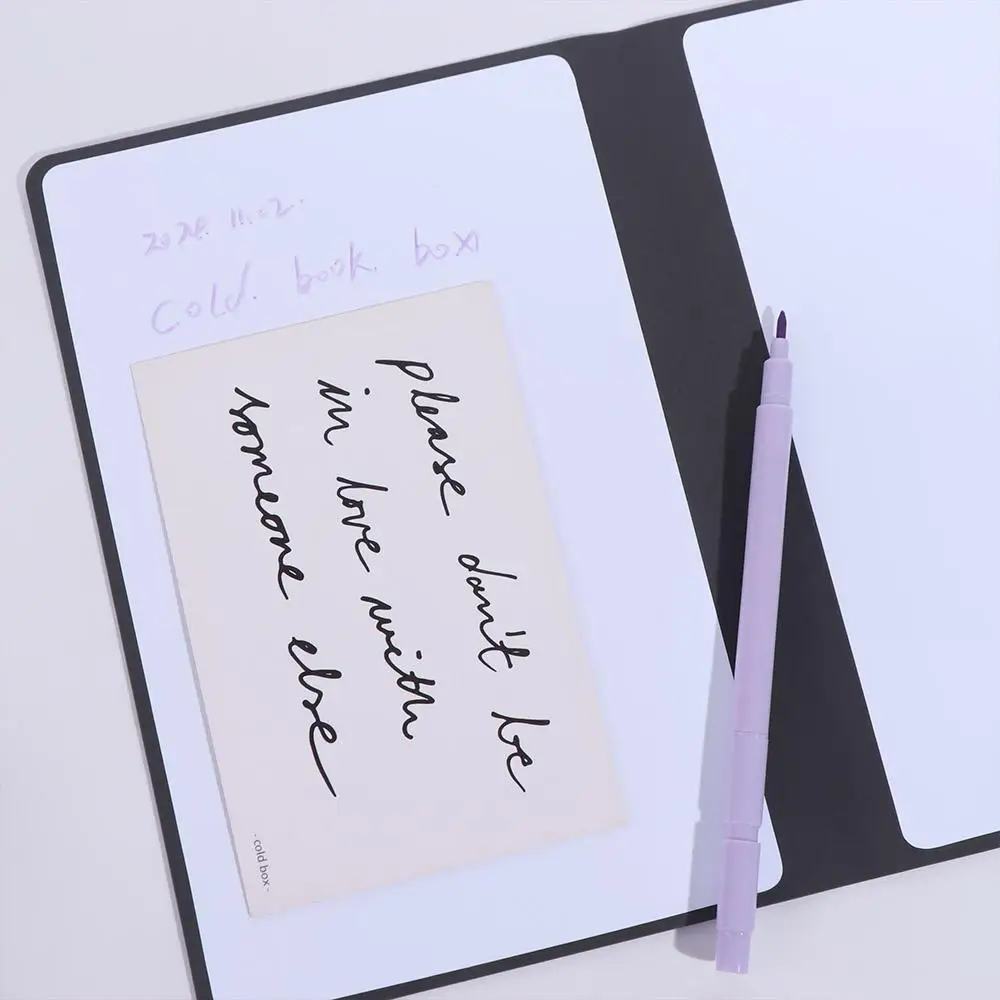 11.02.
cold. book. box
please don't be
in love with
someone else
- cold box -